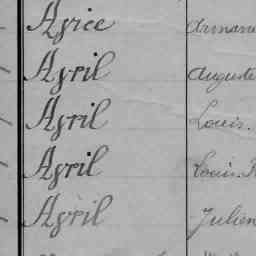 Aprice Arman
April Auguste
April Louis.
April Louis.
April Julien